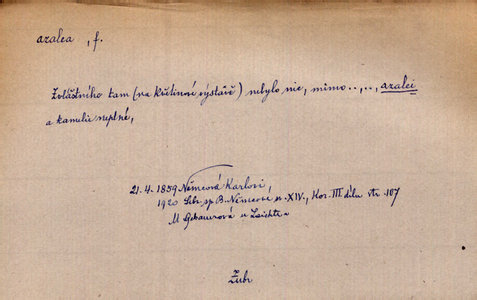 azalea, f.
Zvláštního tam (na květinové výstavě) nebylo nic, mimo..,.., azalei
a kamelie neplné,
21. 4. 1859 Němcová Karlovi,
1920 Sebr. sp. B. Němcové n. XIV., Kor. III. dílu str. 107
M Gebauerová u Laichtra
Žubr